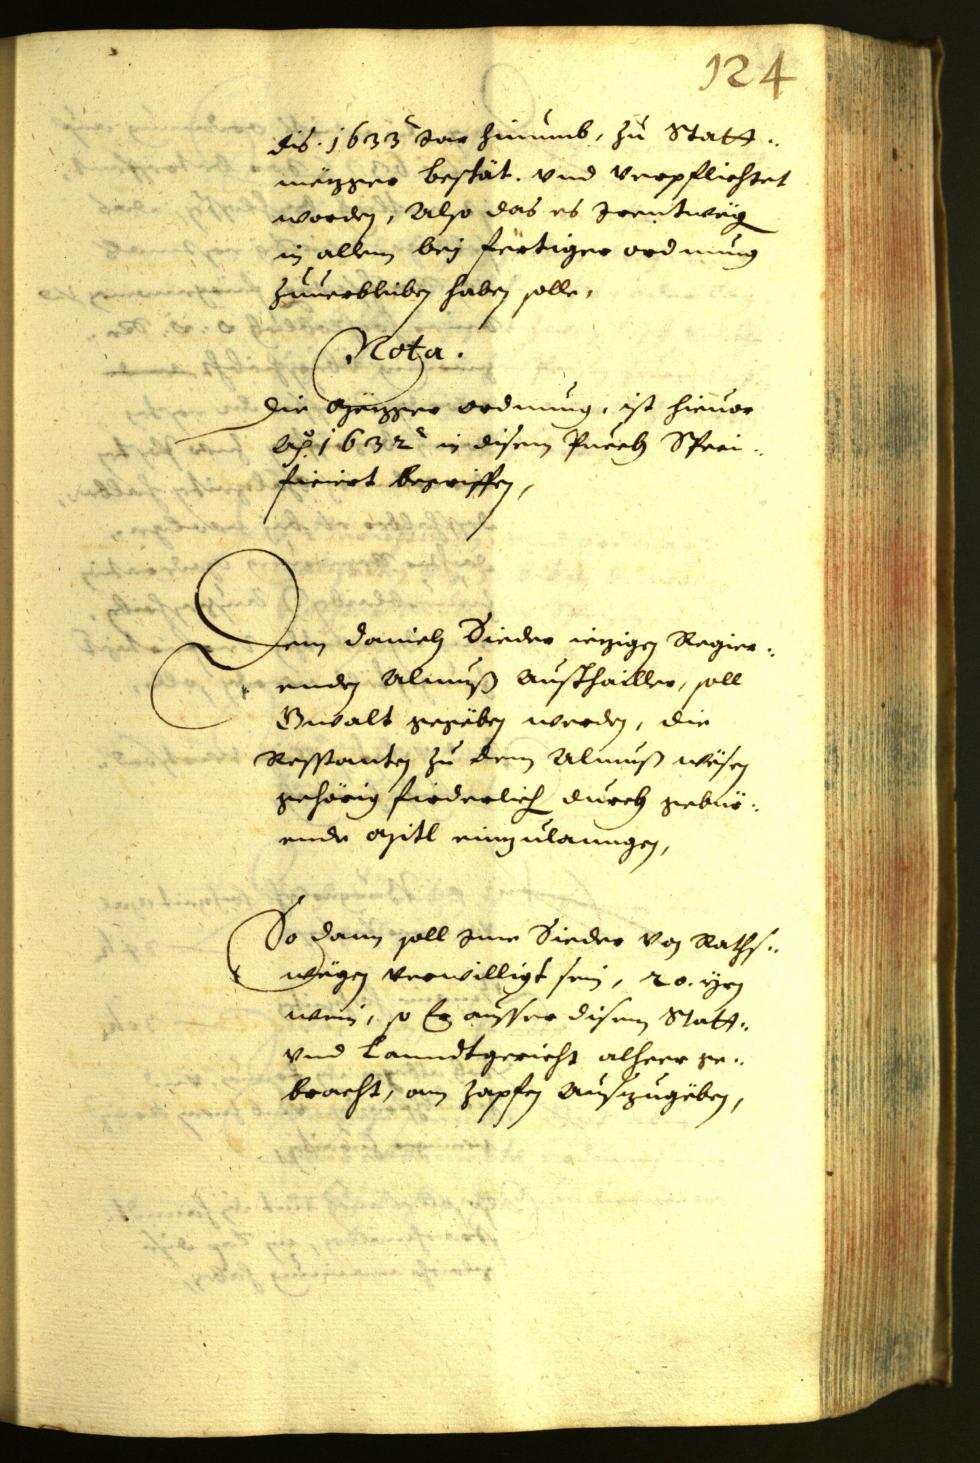 124
dis. 1633 Jar hinumb, zu Statt¬
mëzger bestät. vnd verpflichtet
worden, Also das es Jrentwëg
in allem bey fertiger ordnung
zuuerbleiben haben solle,
Nota.
die Mëzger ordnung, ist hieuor
Ao. 1632 in disem Puech Speci¬
ficiert begriffen,
Dem Daniel Sieder iezigen Regier¬
enden Almueß Austhailler, soll
Gwalt gegëben werden, die
Resstanten zu dem Almueß wësen
gehörig fürderlich durch gebür¬
ende Mitl einzulanngen,
So dann soll Jme Sieder von Raths¬
wëgen verwilligt sein, 20. Yrn
wein, so Er ausser disem Statt¬
vnd Lanndtgericht alheer ge¬
bracht, am Zapfen Auszugëben,